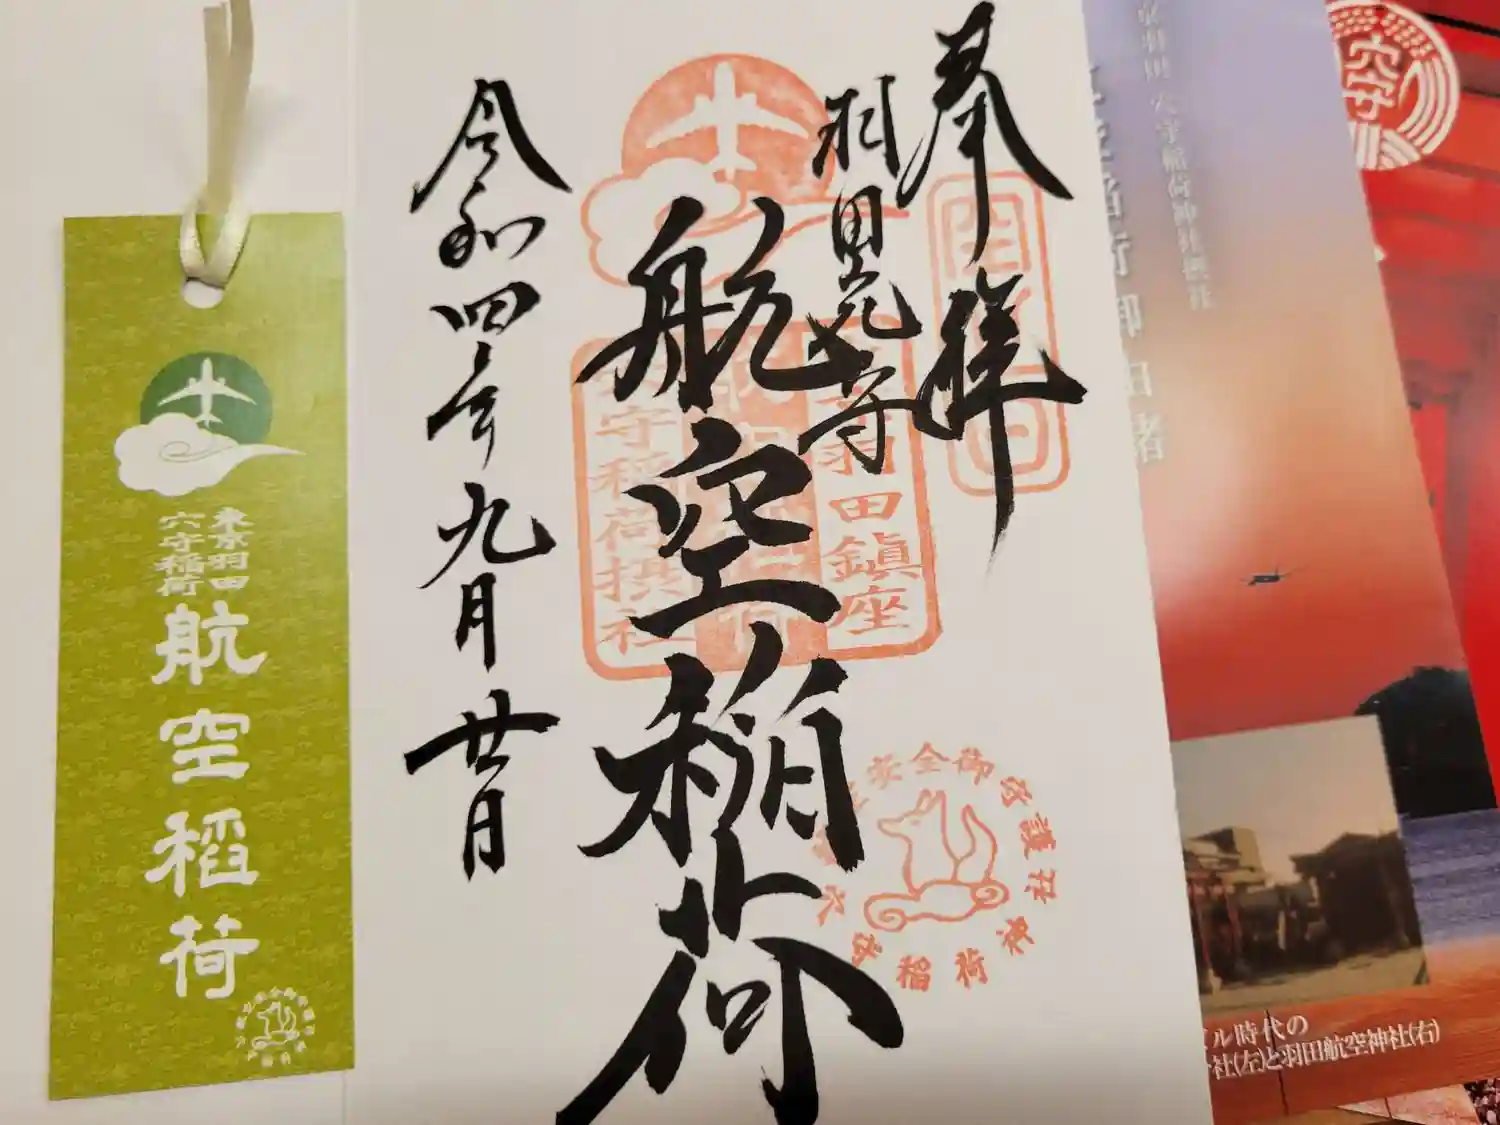 奉拝
羽田穴守
航空稲荷
令和四年九月廿日
東京羽田鎮座
穴守稲荷摂社
安全御守護社
穴守稲荷神
東京羽田
穴守稲荷
航空稲荷
穴守
穴守稲荷神社摂社
ル時代の
社(左)と羽田航空神社(右)